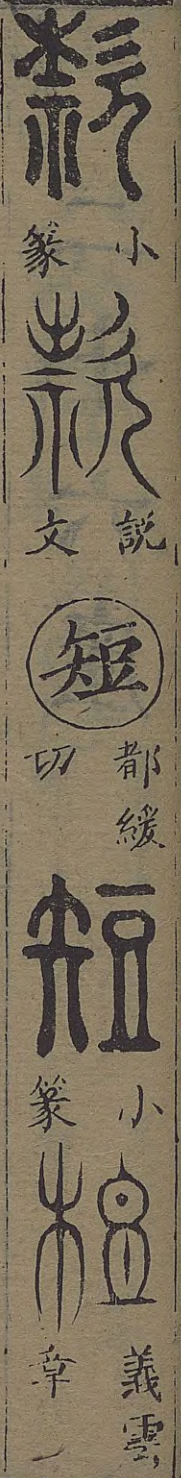 款小篆款說文短都緩切短小篆短義雲章